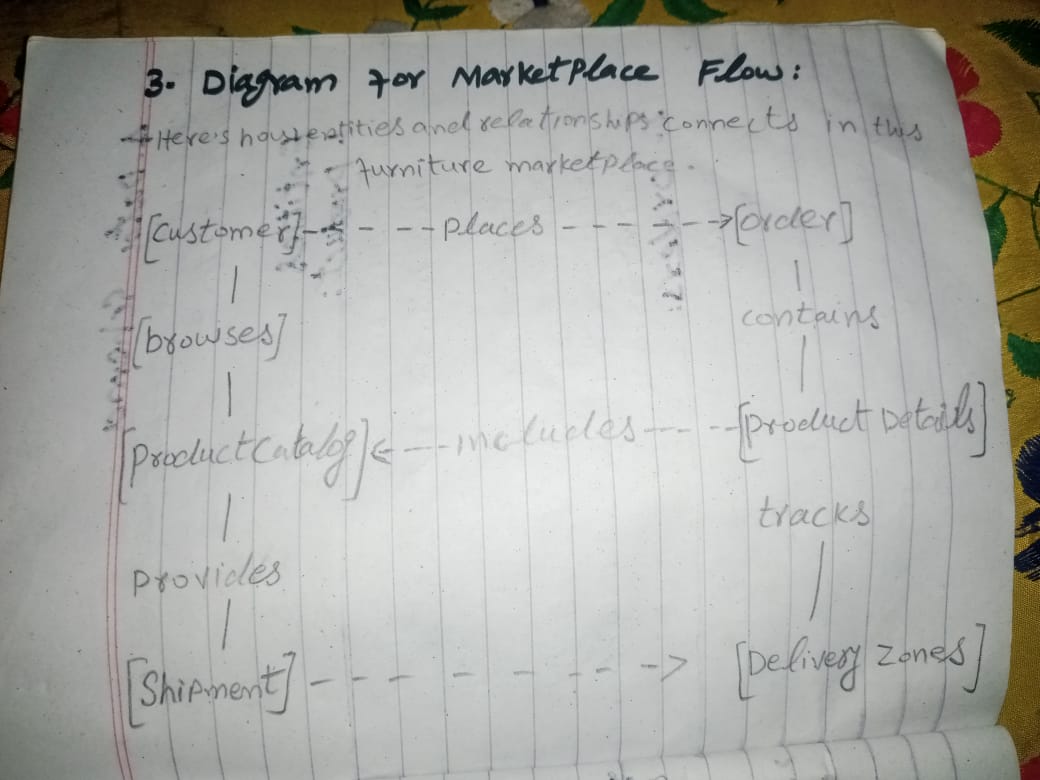 3. Diagram for MarketPlace Flow:
Here's how entities and relationships connects in this
furniture marketplace.
[customer] - - - - places - - - - - -> [order]
contains
[browses]
[Product Catalog] <- - - includes - - - - [Product Details]
tracks
provides
[Shipment] - - - - - - - -> [Delivery zones]